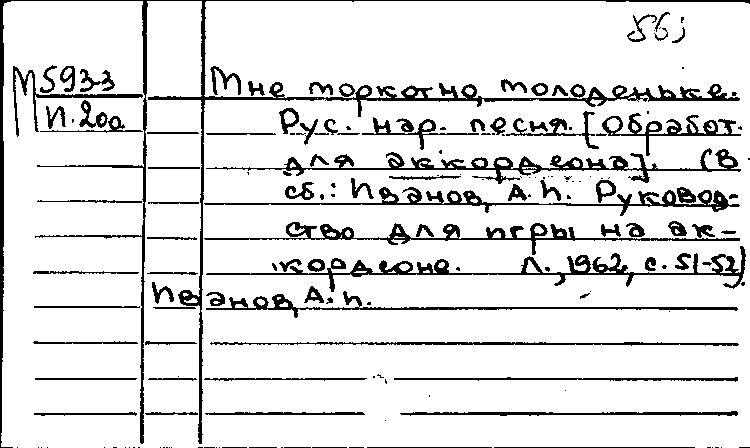 56j
М 593-3 Мне торкотно, молоденьке.
И.200 Рус. нар. песня. [Обработ.
для аккордеона]. (В
сб.: Иванов, А.И. Руковод-
ство для игры на ак-
кордеоне. Л., 1962, с. 51-52)
Иванов, А.И.